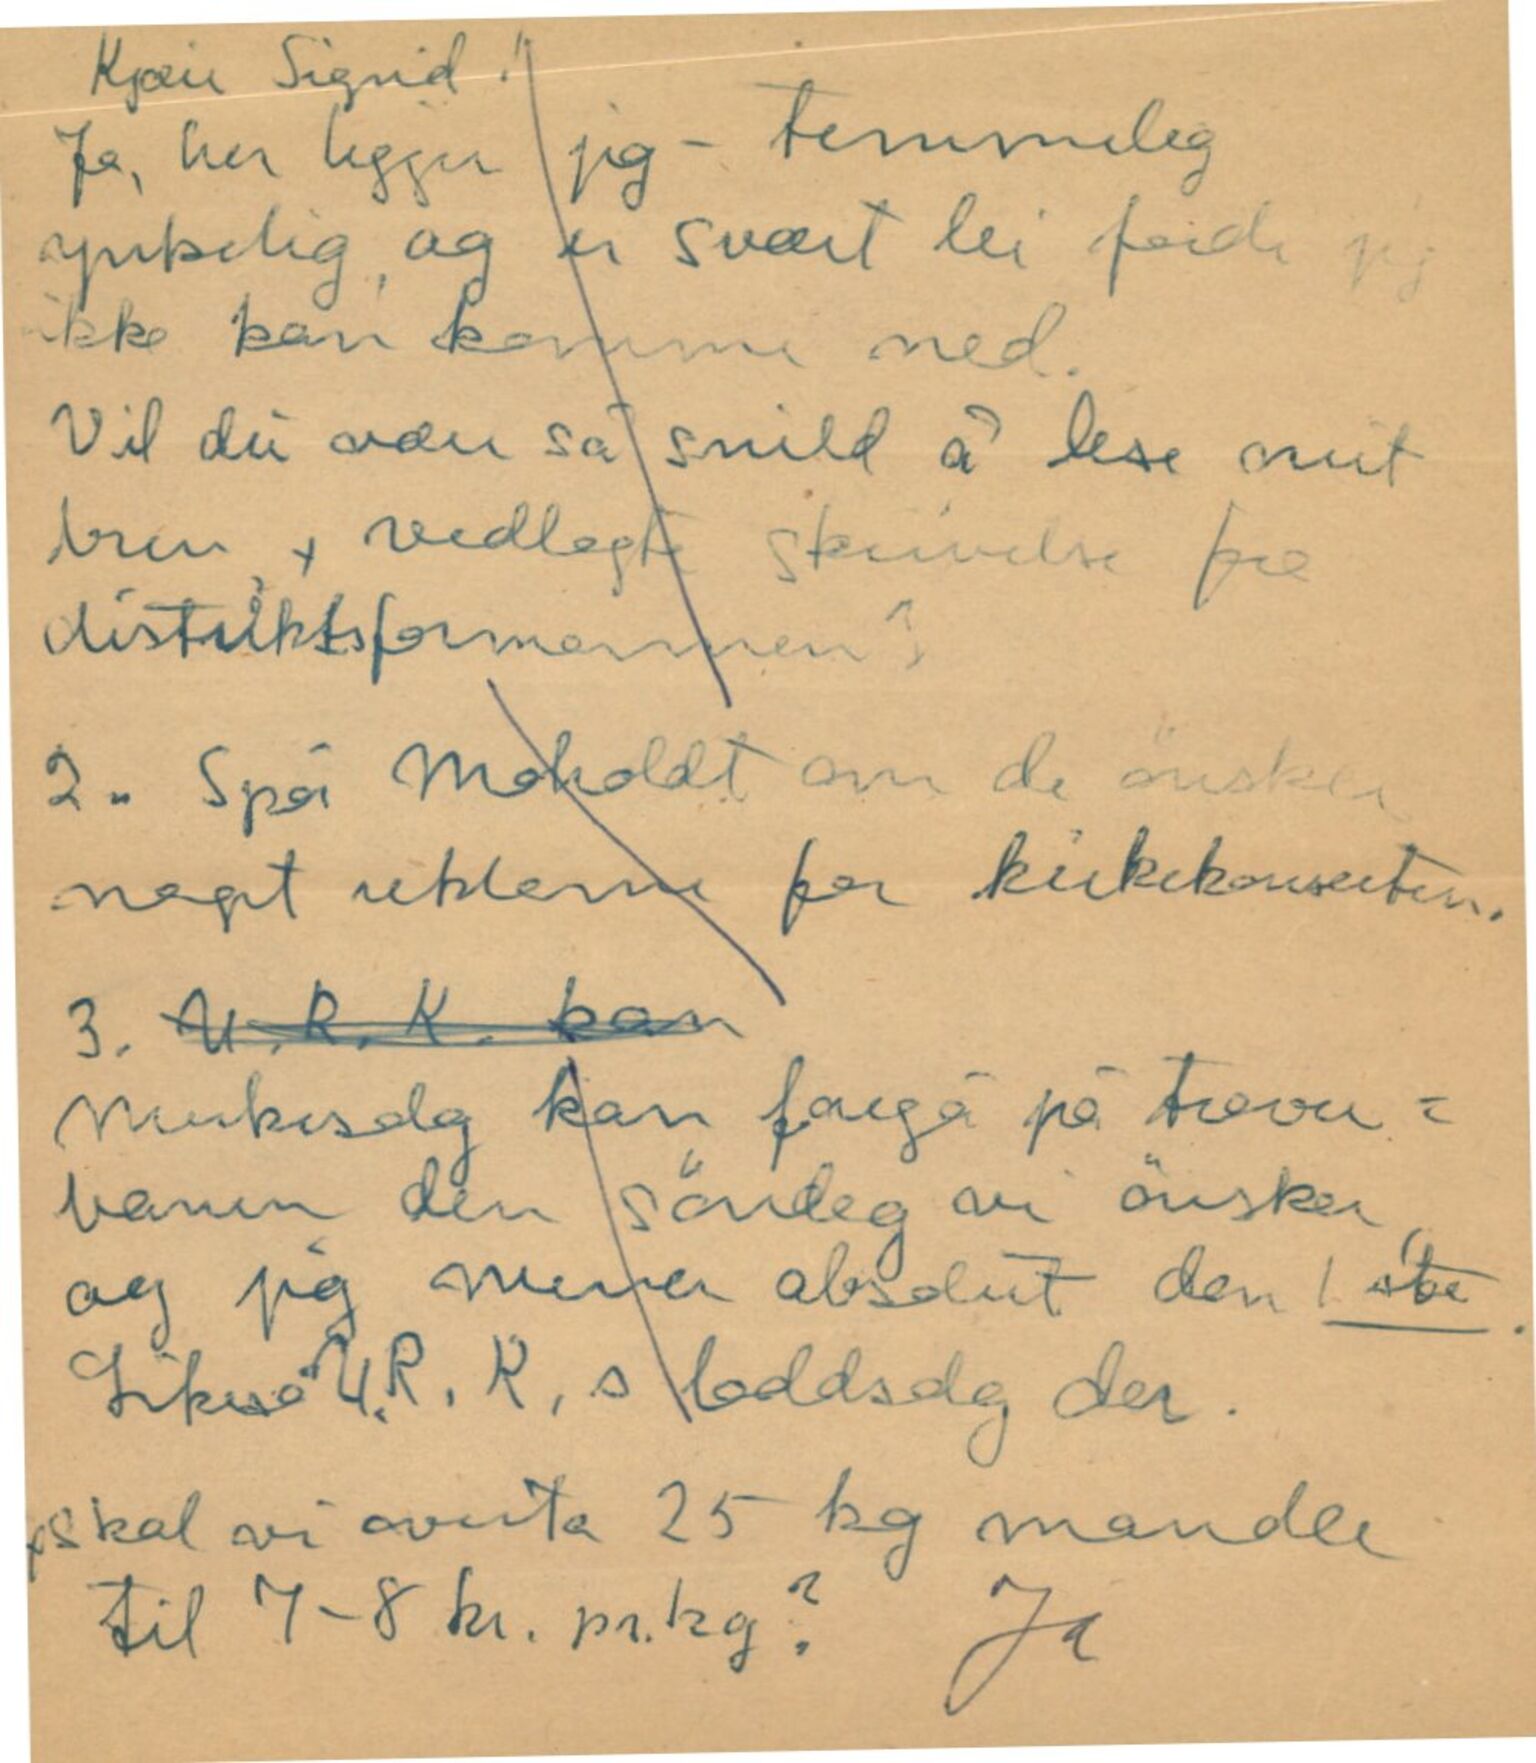 Kjære Sigrid!
Ja, her ligger jeg - temmeleg
ynkelig, og er svært lei fordi jeg
ikke kan komme ned.
Vil du være så snild å lese mit
brev, + vedlagte skrivelse fra
distriktsformannen?
2. Spør Moholdt om de ønsker
noget reklame for kirkekonserten.
3. U.R.K. kan
Merkesalg kan foregå på traver=
banen den söndag vi önsker,
og jeg mener absolut den 1ste.
Likeså U.R.K,s loddsalg der.
x Skal vi overta 25 kg mandler
til 7-8 kr. pr. kg? Ja